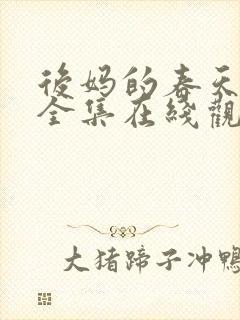 後妈的春天
全集在綫觀
大猪蹄子冲鴨